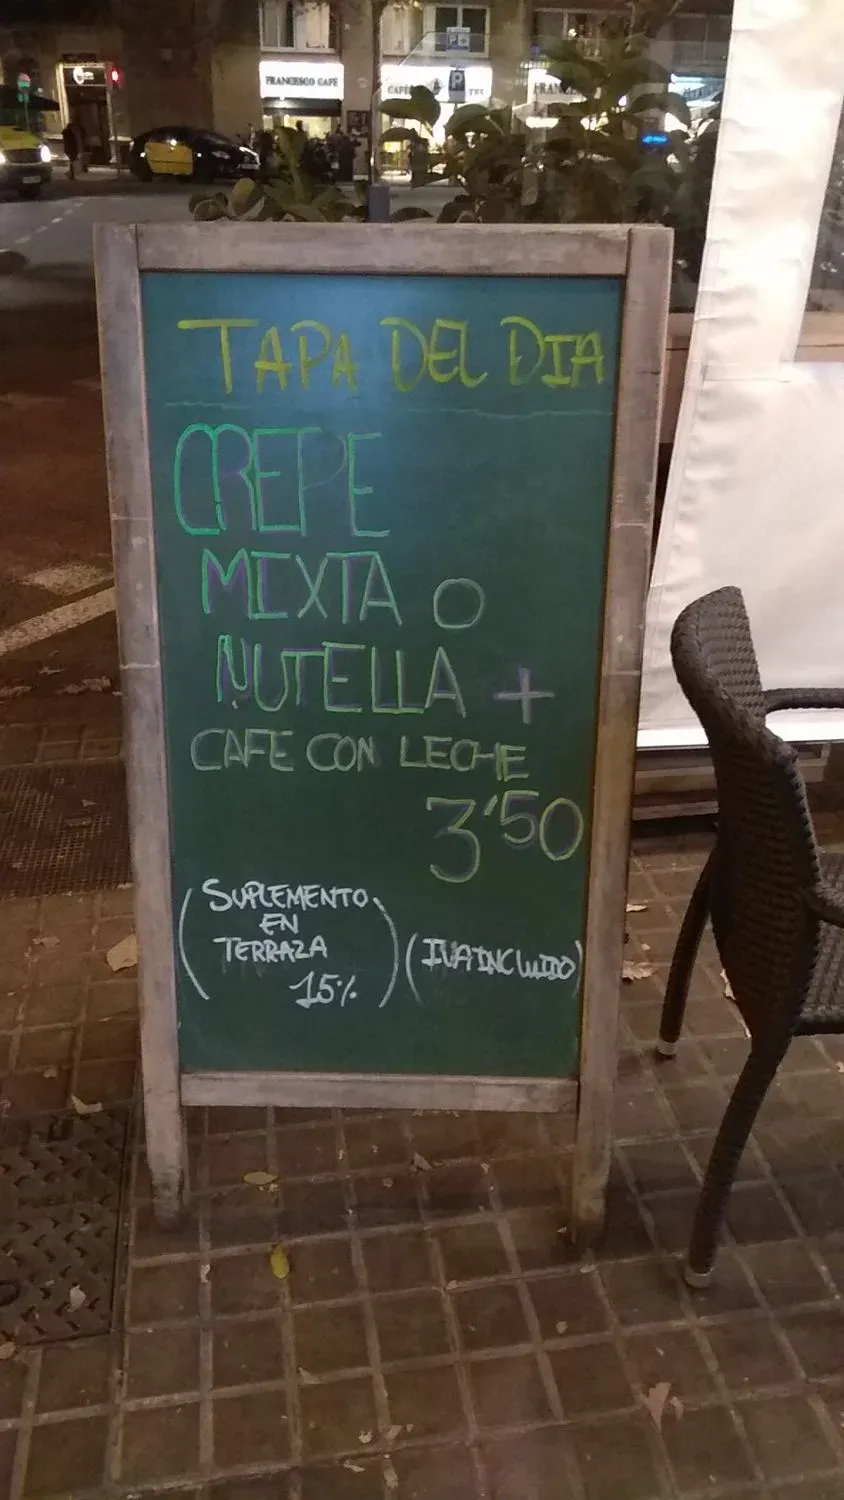 FRANCESCO CAFÉ
P
P
TAPA DEL DIA
CREPE
MIXTA O
NUTELLA +
CAFE CON LECHE
3'50
(SUPLEMENTO
EN
TERRAZA
15%)
(IVA INCLUIDO)